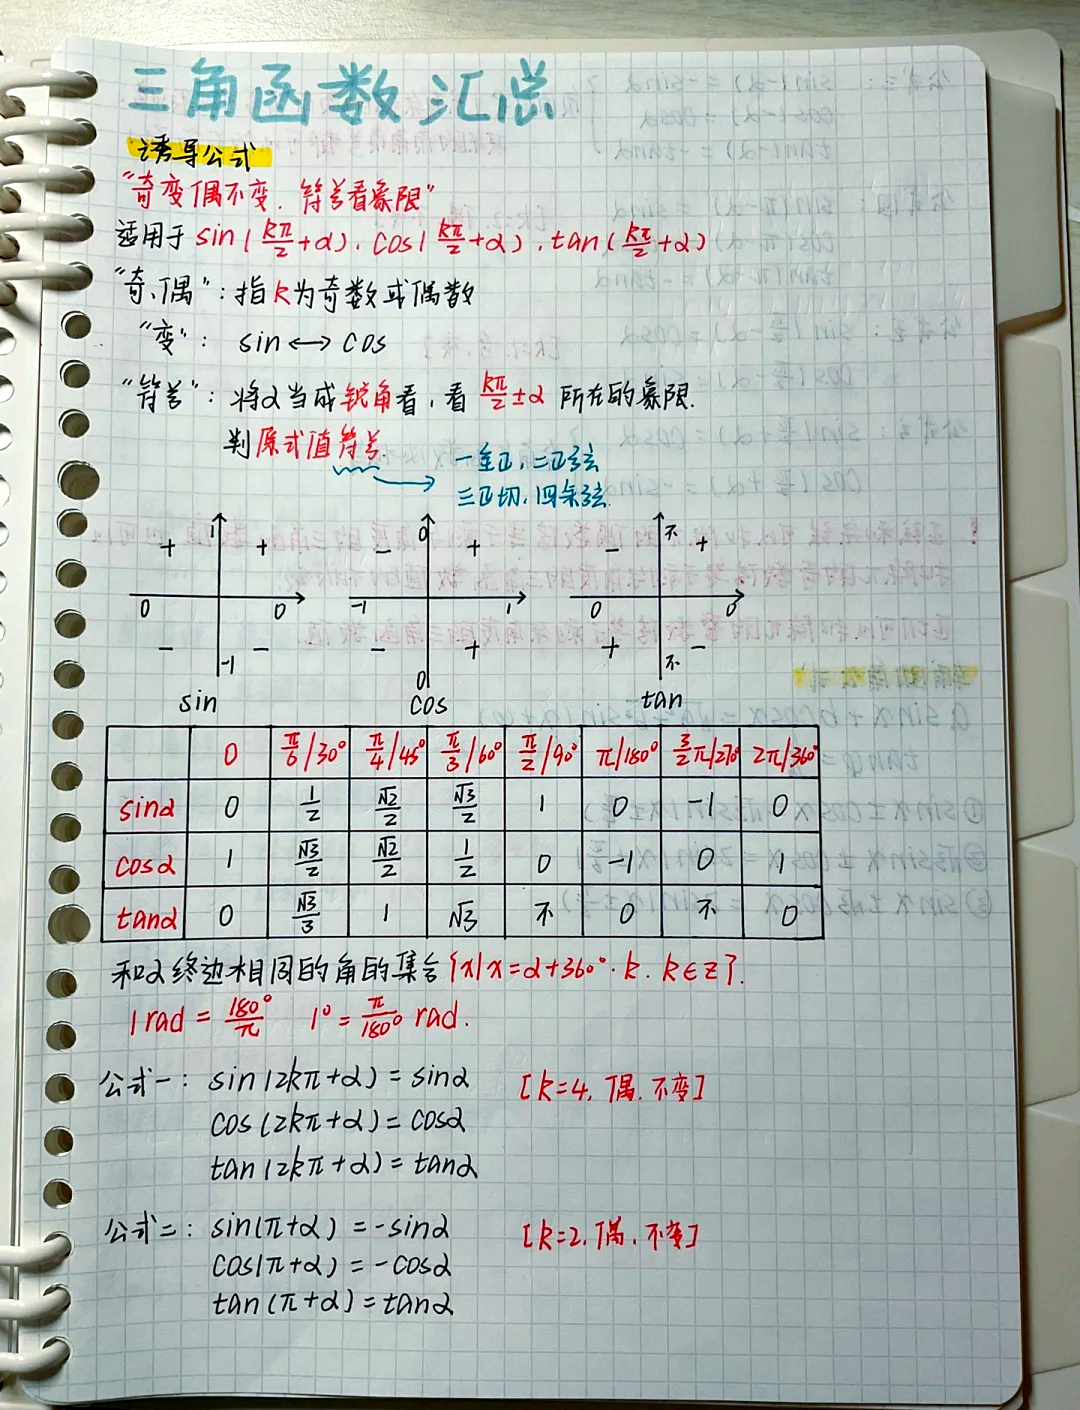 三角函数汇总
诱导公式
“奇变偶不变.符号看象限”
适用于 sin(kπ/2+α).cos(kπ/2+α).tan(kπ/2+α)
“奇、偶”:指k为奇数或偶数
“变”: sin⟷cos
“符号”:将α当成锐角看,看kπ/2±α所在的象限.
判原式值符号.
一全正,二正弦
三正切,四余弦
+ 1 + - 0 + - 不 +
0 0 -1 1 0 0
- -1 - - 0 + + 不 -
sin cos tan
0 π/6/30° π/4/45° π/3/60° π/2/90° π/180° 3/2π/270° 2π/360°
sinα 0 1/2 √2/2 √3/2 1 0 -1 0
cosα 1 √3/2 √2/2 1/2 0 -1 0 1
tanα 0 √3/3 1 √3 不 0 不 0
和α终边相同的角的集合{x|x=α+360°·k.k∈z}.
1rad=180°/π 1°=π/180° rad.
公式一: sin(2kπ+α)=sinα [k=4,偶.不变]
cos(2kπ+α)=cosα
tan(2kπ+α)=tanα
公式二: sin(π+α)=-sinα [k=2,偶.不变]
cos(π+α)=-cosα
tan(π+α)=tanα